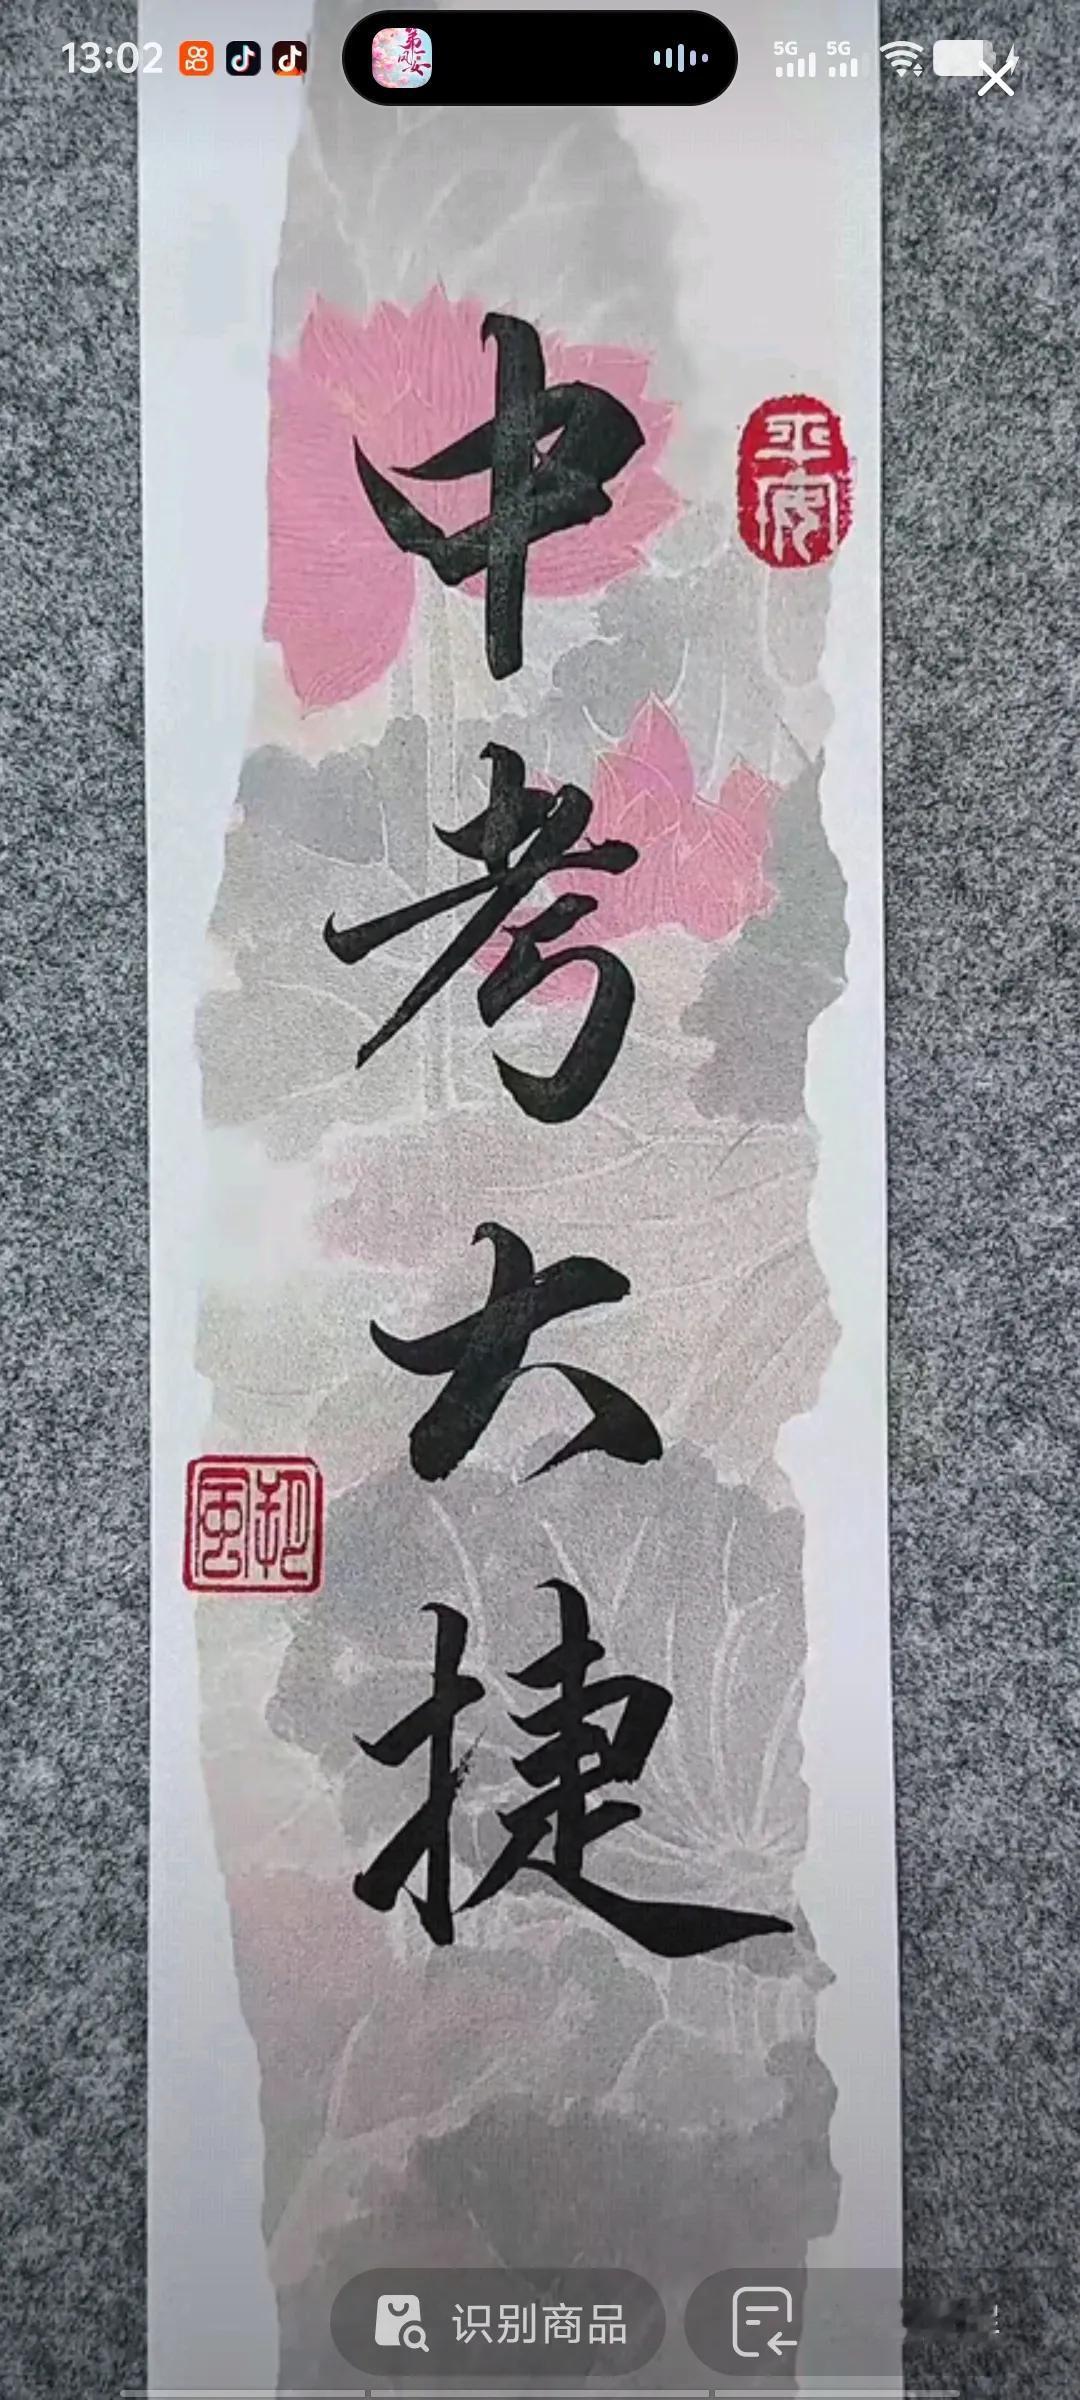 13:02
5G 5G
中考大捷
平安
识别商品